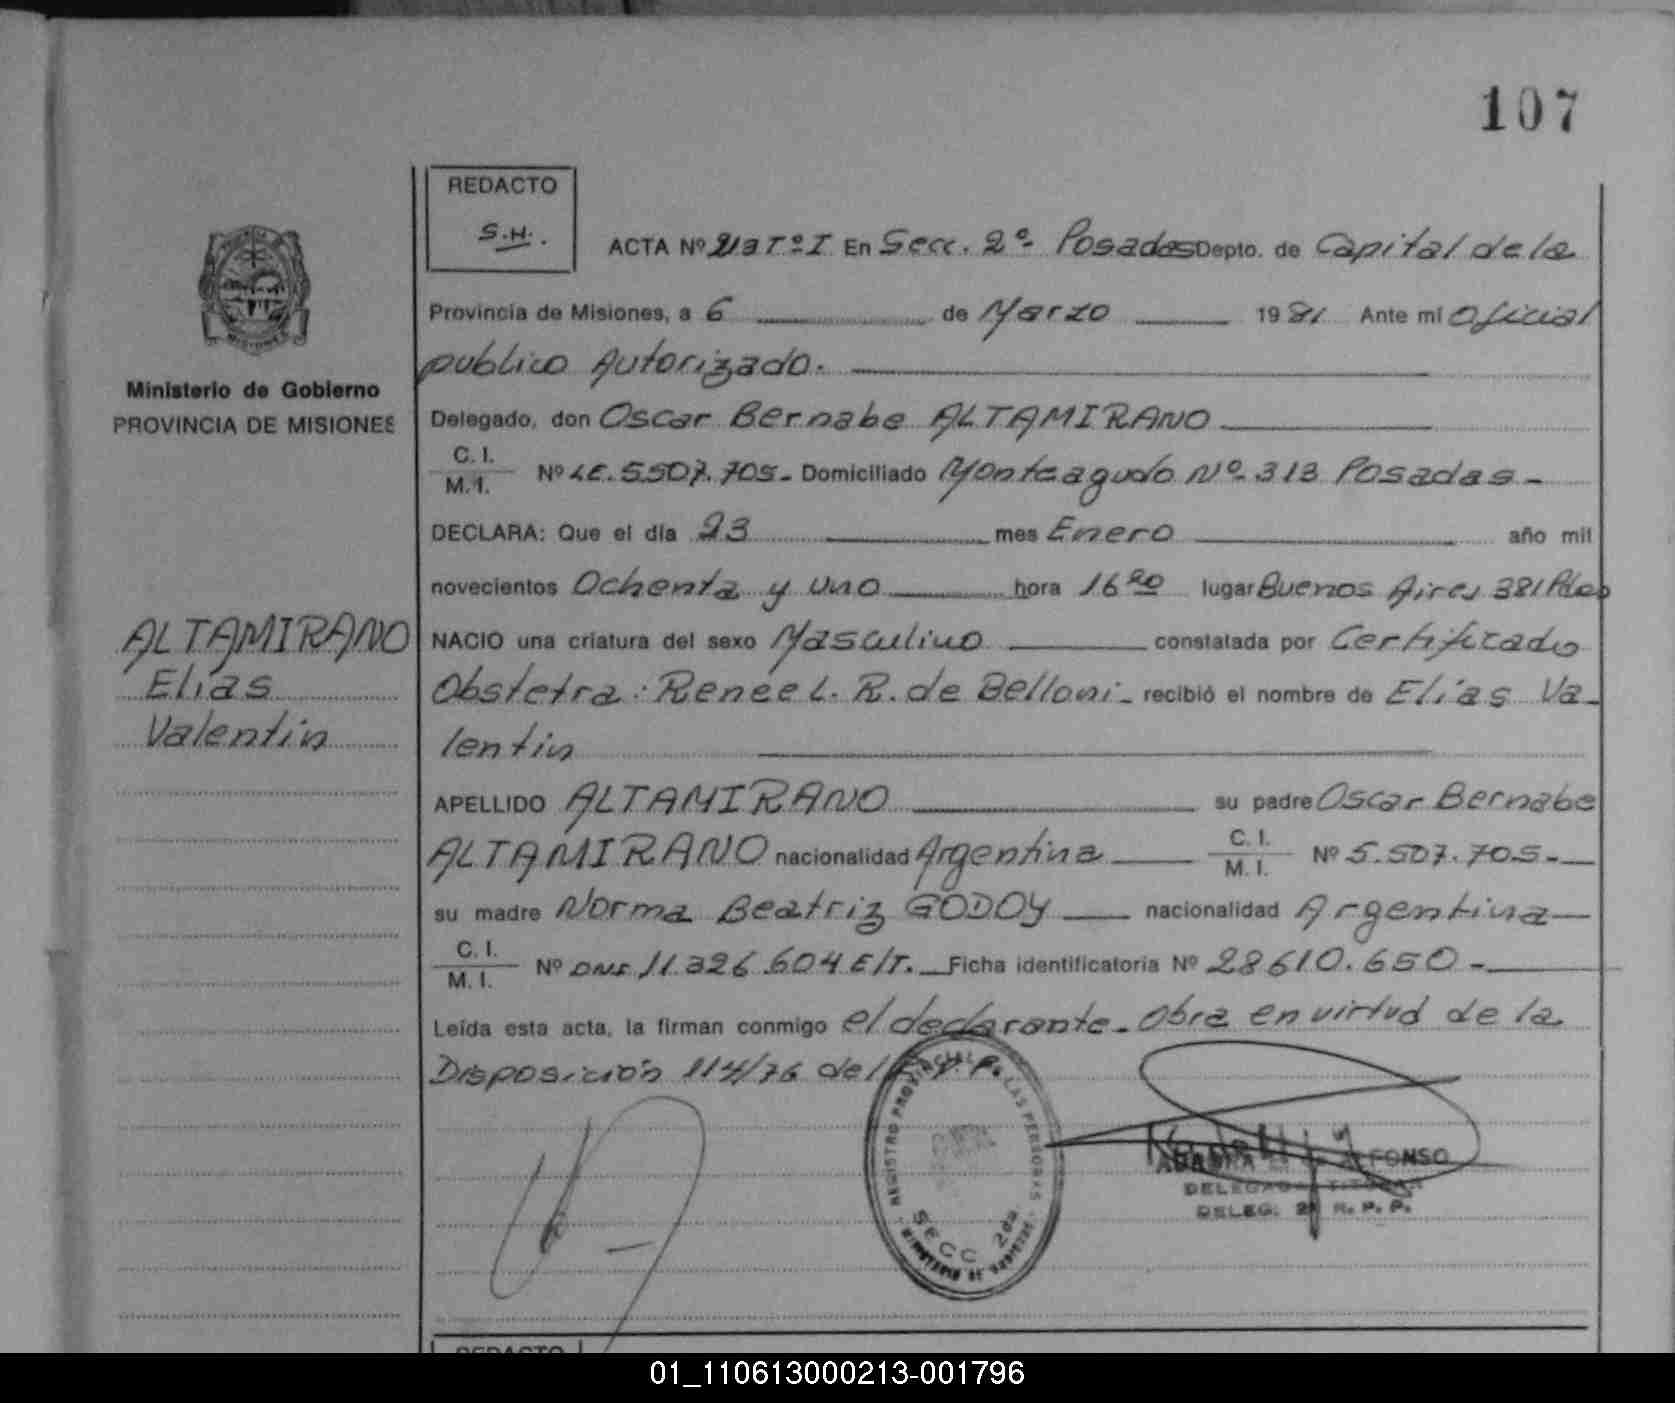 107
REDACTO
S.H.
ACTA Nº 213 Tº I En Secc. 2º- Posadas Depto. de Capital de la
Provincia de Misiones, a 6 de Marzo 1981 Ante mi Oficial
publico Autorizado.
Ministerio de Gobierno
PROVINCIA DE MISIONES
Delegado, don Oscar Bernabe ALTAMIRANO
C. I.
M. I. Nº LE. 5.507.705.- Domiciliado Monteagudo Nº- 313 Posadas -
DECLARA: Que el día 23 mes Enero año mil
novecientos Ochenta y uno hora 16 lugar Buenos Aires 381 Pdas
ALTAMIRANO
Elías
Valentin
NACIO una criatura del sexo Masculino constatada por Certificado
Obstetra: Renee L. R. de Belloni - recibió el nombre de Elías Va-
lentin
APELLIDO ALTAMIRANO su padre Oscar Bernabe
ALTAMIRANO nacionalidad Argentina C. I.
M. I. Nº 5.507.705.-
su madre Norma Beatriz GODOY nacionalidad Argentina
C. I.
M. I. Nº DNI. 11.326.604 E/T. Ficha identificatoria Nº 28610.650.-
Leída esta acta, la firman conmigo el declarante. Obra en virtud de la
Disposición 114/76 del P. P.
REGISTRO PROVINCIAL LAS PERSONAS
SECC 2da
MINISTERIO DE GOBIERNO
ALFONSO
DELEGADA TITULAR
DELEG. 2ª R. P. P.
REDACTO
01_110613000213-001796